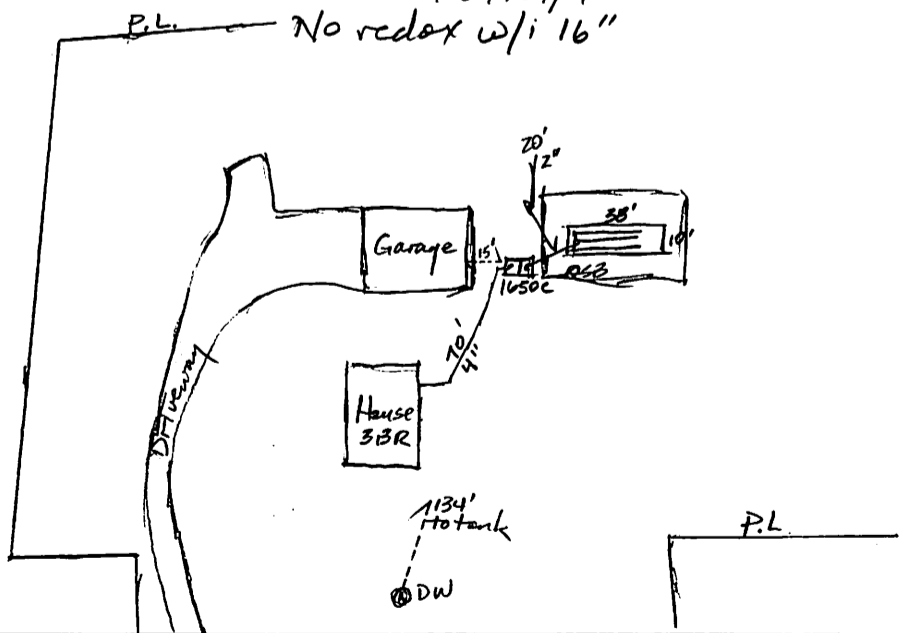 P.L.
No redox w/i 16"
20'
2"
38'
10'
Garage
15'
1650c
70'
4"
Driveway
House
3BR
134'
to tank
P.L.
DW